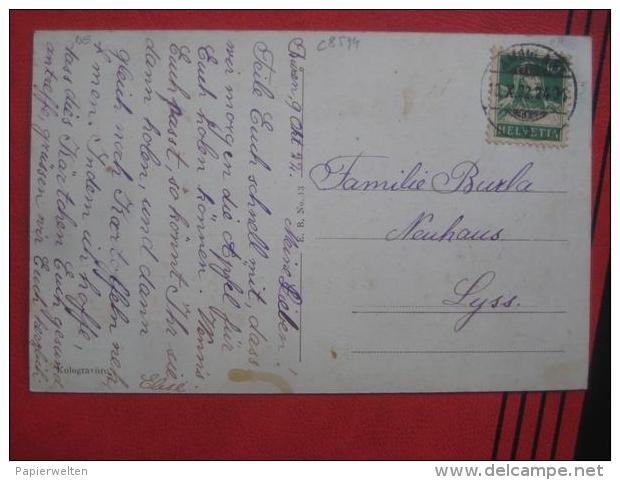 C8594
HELVETIA
Familie Burla
Neuhaus
Lyss.
Okt.
Meine Lieben!
Teile Euch schnell mit, dass
wir morgen die Äpfel für
Euch holen können. Wenns
Euch passt, so könnt Ihr sie
dann holen, und dann
gleich noch Kartoffeln neh-
men. Indem wir hoffe,
dass dies Kärtchen Euch gesund
antreffe, grüssen wir Euch herzlich.
Elise
B. No. 13
Kologravüre
Papierwelten
delcampe.net